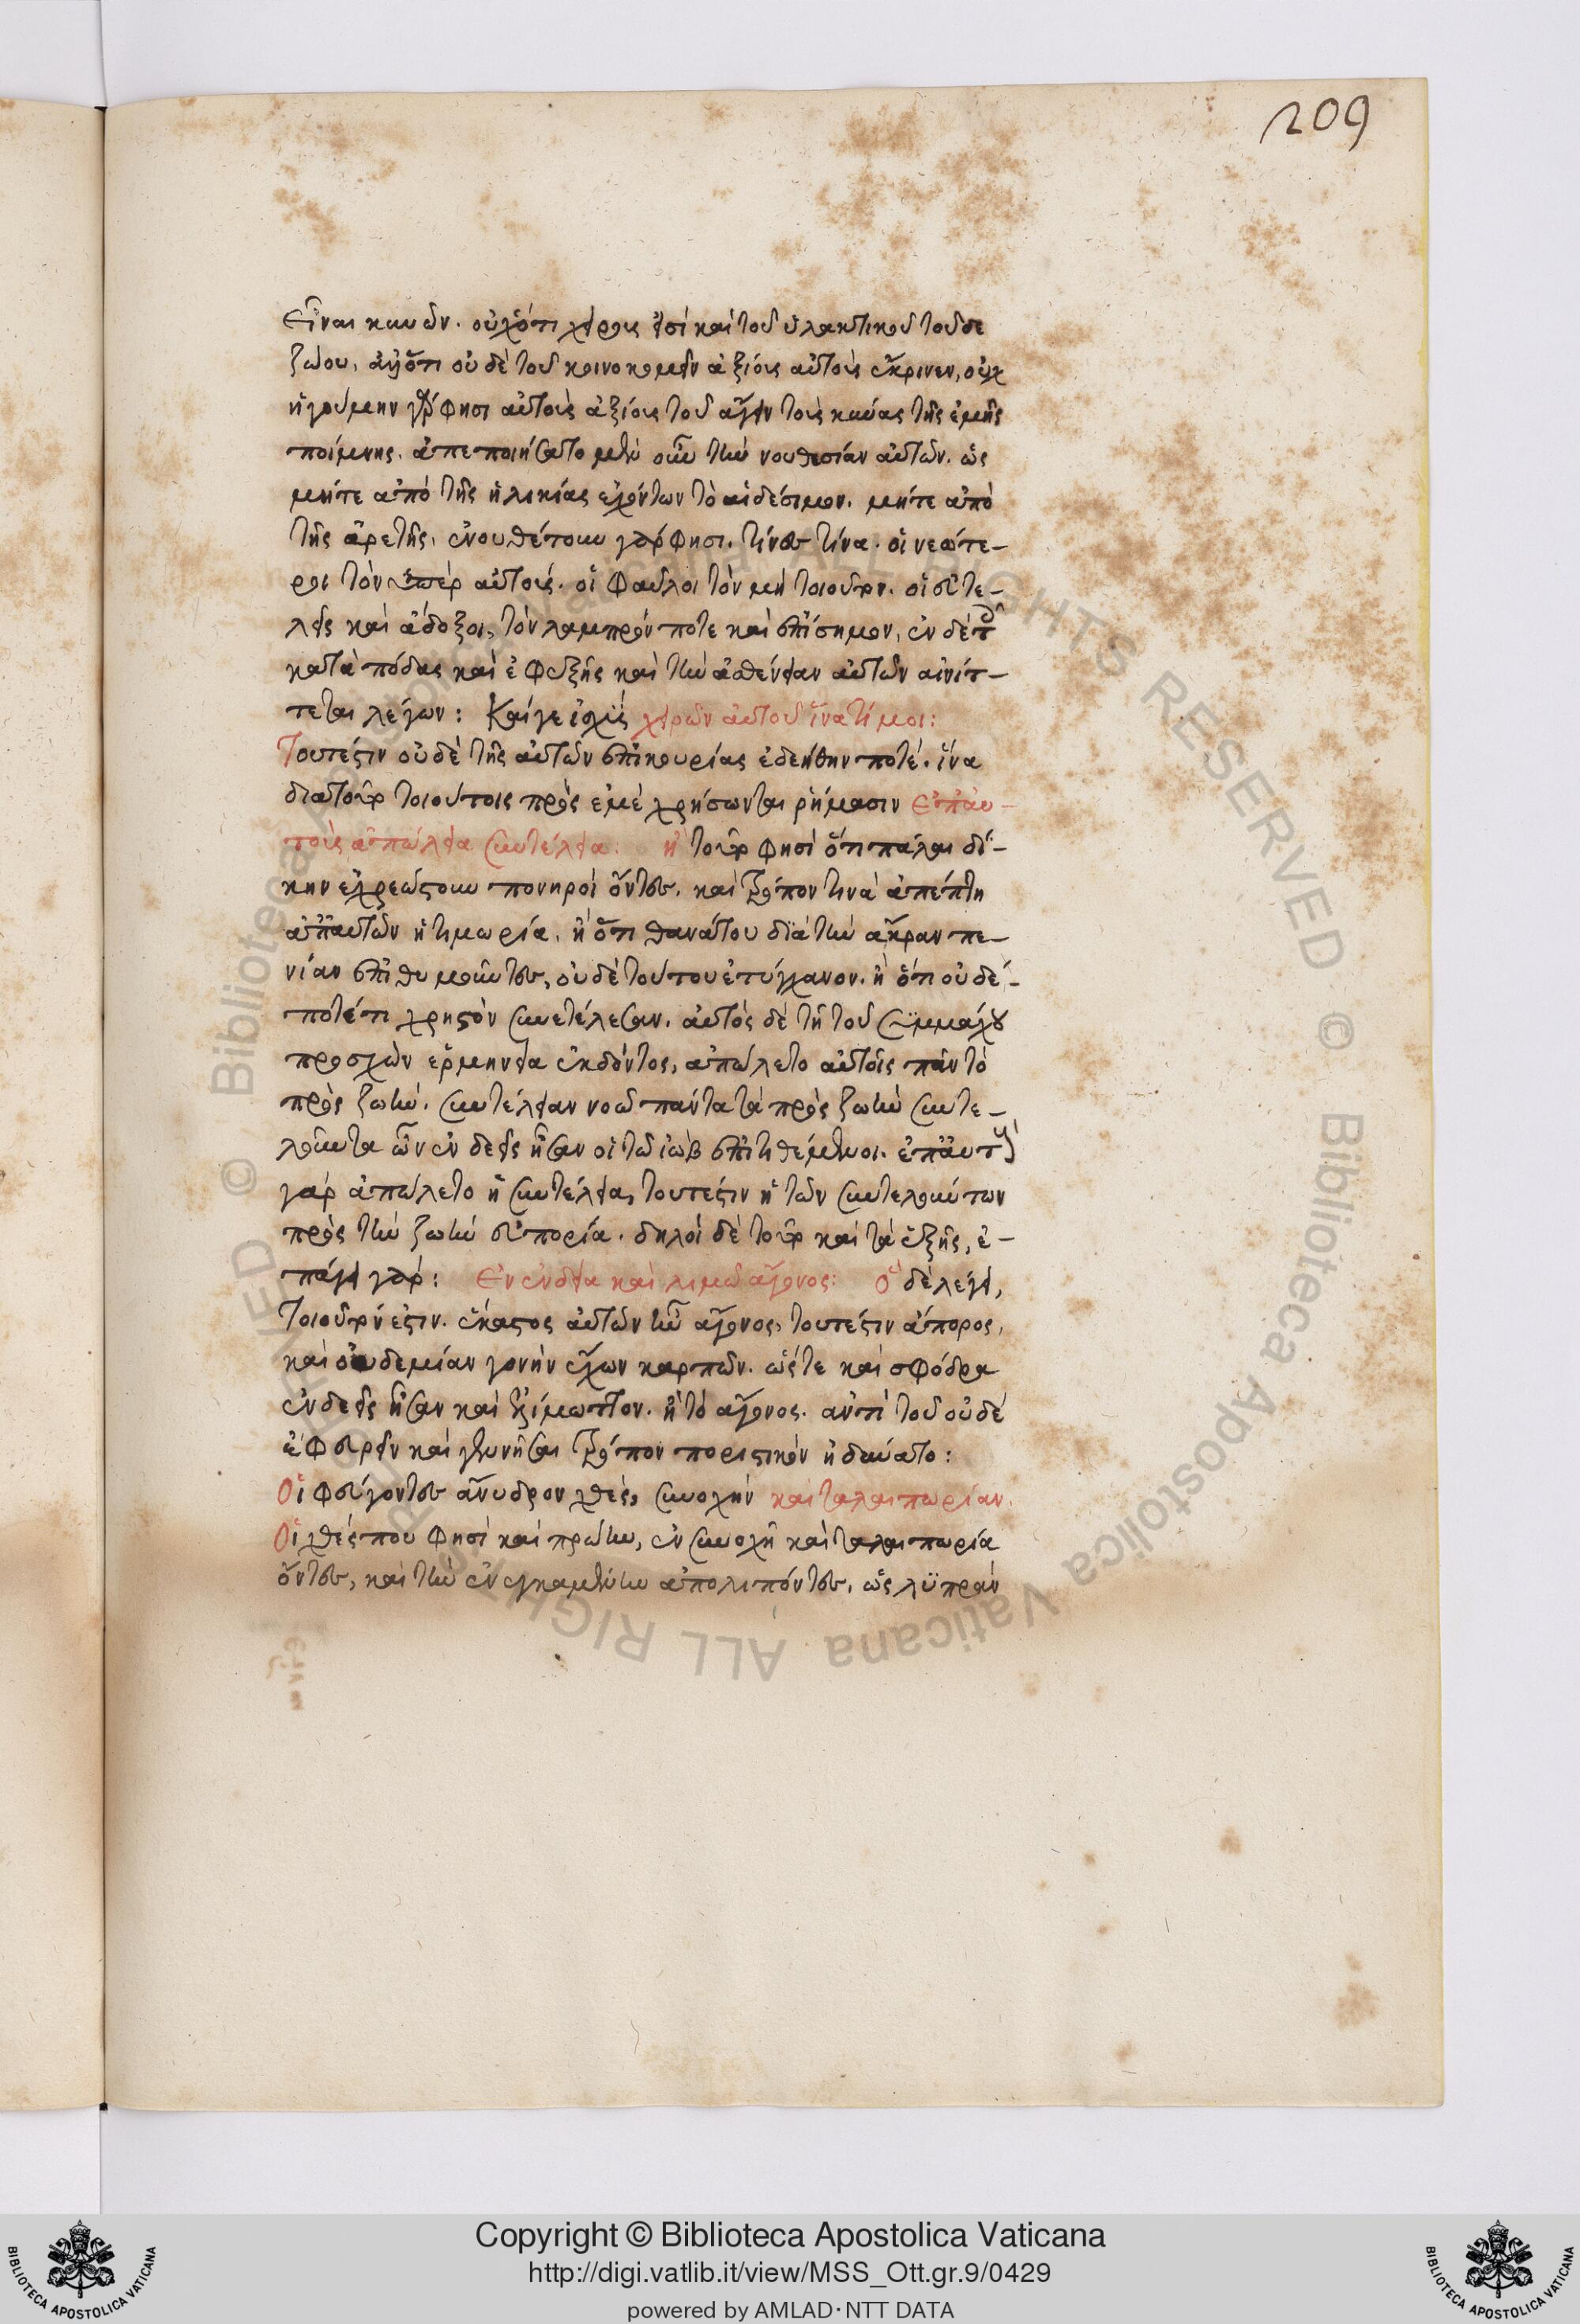 209
εἶναι κυνῶν. οὐχ ὅτι χείρους εἰσὶ καὶ τοῦ ὑλακτικοῦ τοῦδε
ζώου, ἀλλ' ὅτι οὐδὲ τοῦ κοινοκομεῖν ἀξίους αὐτοὺς ἔκρινεν, οὐχ
ἡγούμην γάρ φησι αὐτοὺς ἀξίους τοῦ ἄγειν τοὺς κύνας τῆς ἐμῆς
ποίμνης. ἀπεποιήσατο μὲν οὖν τὴν νουθεσίαν αὐτῶν. ὡς
μήτε ἀπὸ τῆς ἡλικίας ἐχόντων τὸ αἰδέσιμον. μήτε ἀπὸ
τῆς ἀρετῆς, ἐνουθέτουν γάρ φησι. τίνες τίνα. οἱ νεώτε-
ροι τὸν ὑπὲρ αὐτούς. οἱ φαῦλοι τὸν μὴ τοιοῦτον. οἱ εὐτε-
λεῖς καὶ ἄδοξοι, τὸν λαμπρόν ποτε καὶ ἐπίσημον, ἐν δὲ τῶ
κατὰ πόδας καὶ ἐφεξῆς καὶ τὴν ἀσθένειαν αὐτῶν αἰνίτ-
τεται λέγων: Καί γε ἰσχὺς χειρῶν αὐτοῦ ἵνα τί μοι:
Τουτέστιν οὐδὲ τῆς αὐτῶν ἐπικουρίας ἐδεήθην ποτέ. ἵνα
διὰ τοῦτο τοιούτοις πρὸς ἐμὲ χρήσωνται ῥήμασιν ἐπ' αὐ-
τοὺς ἀπώλεια συντέλεια: ἢ τοῦτο φησὶ ὅτι πάλαι δί-
κην ἐχρεώστουν πονηροὶ ὄντες. καὶ τρόπον τινὰ ἀπέπτη
ἀπ' αὐτῶν ἡ τιμωρία, ἢ ὅτι θανάτου διὰ τὴν ἄκραν πε-
νίαν ἐπιθυμοῦντες, οὐδὲ τούτου ἐτύγχανον. ἢ ὅτι οὐδέ-
ποτέ τι χρηστὸν συνετέλεσαν. αὐτὸς δὲ τῆ τοῦ Συμμάχου
προσχὼν ἑρμηνεία ἐκδόντος, ἀπώλετο αὐτοῖς πᾶν τὸ
πρὸς ζωήν. συντέλειαν νοῶ πάντα τὰ πρὸς ζωὴν συντε-
λοῦντα ὧν ἐνδεεῖς ἦσαν οἱ τῶ ἰὼβ ἐπιτιθέμενοι. ἐπ' αὐτοὺς
γὰρ ἀπώλετο ἡ συντέλεια, τουτέστιν ἡ τῶν συντελούντων
πρὸς τὴν ζωὴν εὐπορία. δηλοῖ δὲ τοῦτο καὶ τὰ ἑξῆς, ἐ-
πάγει γάρ: Ἐν ἐνδεία καὶ λιμῶ ἄγονος: ὃ δὲ λέγει,
Τοιοῦτόν ἐστιν. ἕκαστος αὐτῶν ἦν ἄγονος, τουτέστιν ἄπορος,
καὶ οὐδεμίαν γονὴν ἔχων καρπῶν. ὥστε καὶ σφόδρα
ἐνδεεῖς ἦσαν καὶ ἐλίμωττον. ἢ τὸ ἄγονος. ἀντὶ τοῦ οὐδὲ
ἐφευρεῖν καὶ γεννῆσαι τρόπον ποριστικὸν ἠδύνατο:
Οἱ φεύγοντες ἄνυδρον χθὲς, συνοχὴν καὶ ταλαιπωρίαν.
Οἱ χθές που φησὶ καὶ πρώην, ἐν συνοχῆ καὶ ταλαιπωρία
ὄντες, καὶ τὴν ἐνεγκαμένην ἀπολιπόντες, ὡς λυπρὰν
Copyright © Biblioteca Apostolica Vaticana
http://digi.vatlib.it/view/MSS_Ott.gr.9/0429
powered by AMLAD·NTT DATA